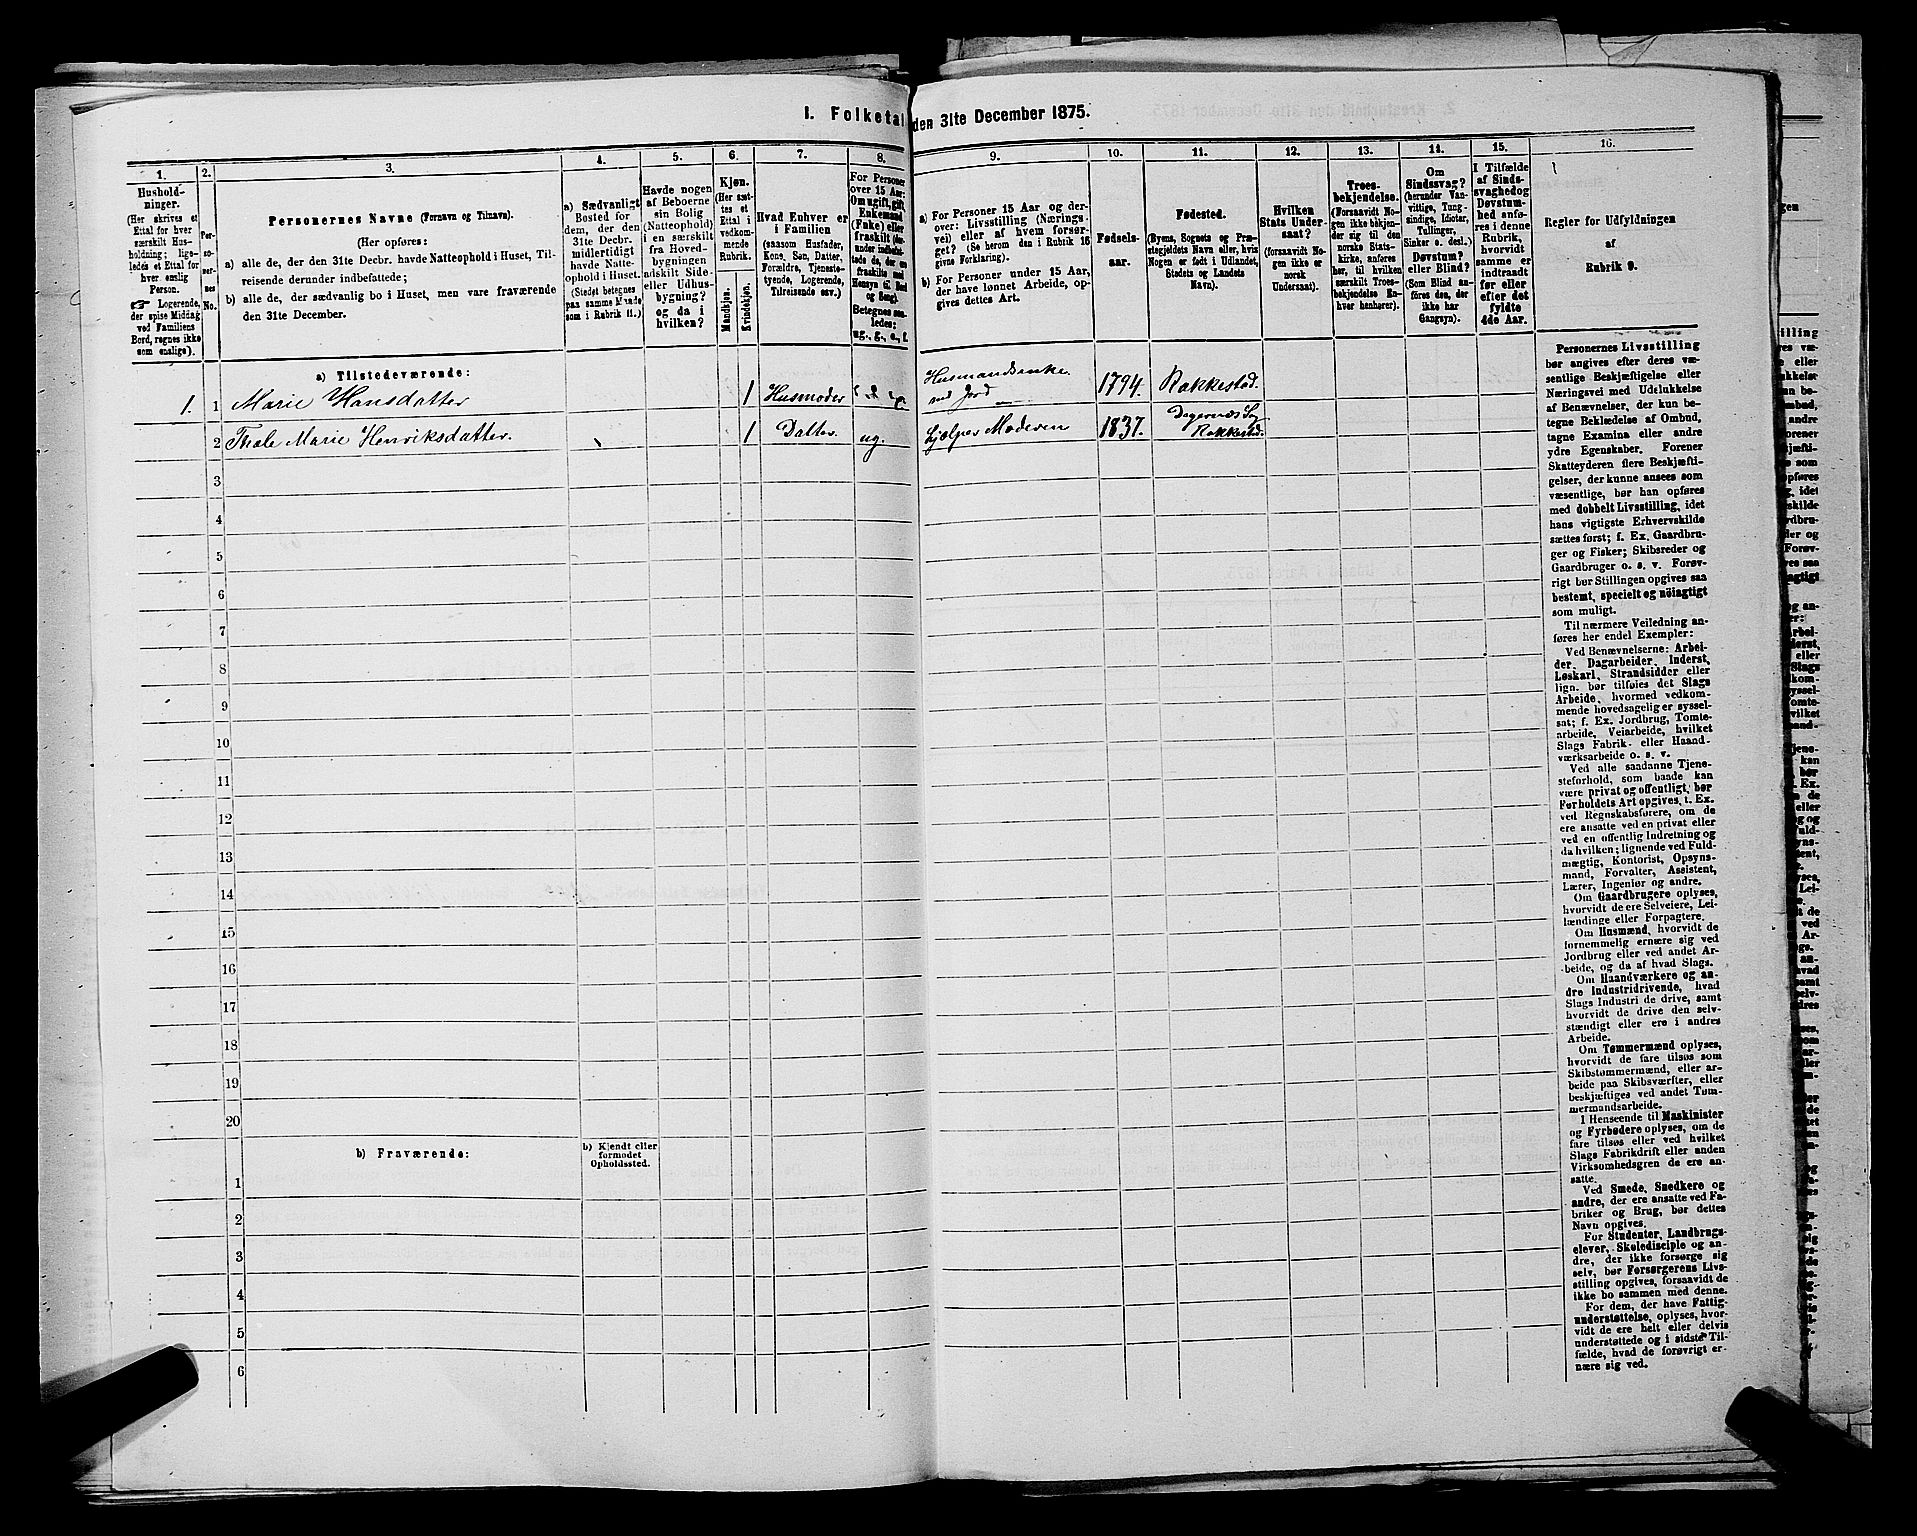 1. Folketal den 31te December 1875.
1.
2.
3.
4.
5.
6.
7.
8.
9.
10.
11.
12.
13.
14.
15.
16.
Hushold-
ninger.
(Her skrives et
Ettal for hver
særskilt Hus-
holdning; lige-
ledes et Ettal for
hver enslig
Person.
Logerende,
der spise Middag
ved Familiens
Bord, regnes ikke
som enslige).
Per-
so-
ner-
nes
No.
Personernes Navne (Fornavn og Tilnavn).
(Her opføres:
a) alle de, der den 31te Decbr. havde Natteophold i Huset, Til-
reisende derunder indbefattede;
b) alle de, der sædvanlig bo i Huset, men vare fraværende
den 31te December.
a) Sædvanligt
Bosted for
dem, der den
31te Decbr.
midlertidigt
havde Natte-
ophold i Huset.
(Stedet betegnes
paa samme Maade
som i Rubrik 11.)
Havde nogen
af Beboerne
sin Bolig
(Natteophold)
i en særskilt
fra Hoved-
bygningen
adskilt Side-
eller Udhus-
bygning?
og da i
hvilken?
Kjøn.
(Her sæt-
tes et
Ettal i
vedkom-
mende
Rubrik.
Mandkjøn.
Kvindekjøn.
Hvad Enhver er
i Familien
(saasom Husfader,
Kone, Søn, Datter,
Forældre, Tjeneste-
tyende, Logerende,
Tilreisende osv.)
For Personer
over 15 Aar:
Om ugift, gift,
Enkemand
(Enke) eller
fraskilt
Betegnes saa-
ledes:
ug., g., e., f.
a) For Personer 15 Aar og der-
over: Livsstilling (Nærings-
vei) eller af hvem forsør-
get? (Se herom den i Rubrik 16
givne Forklaring).
b) For Personer under 15 Aar,
der have lønnet Arbeide, op-
gives dettes Art.
Fødsels-
aar.
Fødested.
(Byens, Sognets og Præ-
stegjeldets Navn eller, hvis
Nogen er født i Udlandet,
Stedets og Landets
Navn).
Hvilken
Stats Under-
saat?
(forsaavidt No-
gen ikke er
norsk
Undersaat).
Troes-
bekjendelse.
(Forsaavidt No-
gen ikke bekjen-
der sig til den
norske Stats-
kirke, anføres
her, til hvilken
særskilt Troes-
bekjendelse En-
hver henhører).
Om
Sindssvag?
(herunder Van-
vittige, Tung-
sindige, Idioter,
Tullinger,
Sinker o. desl.)
Døvstum?
eller Blind?
(Som Blind an-
føres den, der
ikke har
Gangsyn).
I Tilfælde
af Sinds-
svaghed og
Døvstum-
hed anfø-
res i denne
Rubrik,
hvorvidt
samme er
indtraadt
før eller
efter det
fyldte
4de Aar.
Regler for Udfyldningen
af
Rubrik 9.
a) Tilstedeværende:
1. 1 Marie Hansdatter 1 Husmoder e Husmandsenke med Jord 1794. Rakkestad.
2 Thale Marie Henriksdatter. 1 Datter. ug. hjelper Moderen 1837. Degernæs Sog Rakkestad.
3
4
5
6
7
8
9
10
11
12
13
14
15
16
17
18
19
20
b) Fraværende:
b) Kjendt eller
formodet
Opholdssted.
1
2
3
4
5
6
Personernes Livsstilling
bør angives efter deres væ-
sentlige Beskjæftigelse eller
Næringsvei med Udelukkelse
af Benævnelser, der kun be-
tegne Beklædelse af Ombud,
tagne Examina eller andre
ydre Egenskaber. Forener
Skatteyderen flere Beskjæfti-
gelser, der kunne ansees som
væsentlige, bør han opføres
med dobbelt Livsstilling, idet
hans vigtigste Erhvervskilde
sættes først; f. Ex. Gaardbru-
ger og Fisker; Skibsreder og
Gaardbruger o. s. v. Forøv-
rigt bør Stillingen opgives saa
bestemt, specielt og nöiagtigt
som muligt.
Til nærmere Veiledning an-
føres her endel Exempler:
Ved Benævnelserne: Arbei-
der, Dagarbeider, Inderst,
Løskarl, Strandsidder eller
lign. bør tilføies det Slags
Arbeide, hvormed vedkom-
mende hovedsagelig er syssel-
sat; f. Ex. Jordbrug, Tomte-
arbeide, Veiarbeide, hvilket
Slags Fabrik- eller Haand-
værksarbeide o. s. v.
Ved alle saadanne Tjene-
steforhold, som baade kan
være privat og offentligt, bør
Forholdets Art opgives, t. Ex.
ved Regnskabsførere, om de
ere ansatte ved en privat eller
ved en offentlig Indretning og
da hvilken; lignende ved Fuld-
mægtig, Kontorist, Opsyns-
mand, Forvalter, Assistent,
Lærer, Ingeniør og andre.
Om Gaardbrugere oplyses,
hvorvidt de ere Selveiere, Lei-
lændinge eller Forpagtere.
Om Husmænd, hvorvidt de
fornemmelig ernære sig ved
Jordbrug eller ved andet Ar-
beide, og da af hvad Slags.
Om Haandværkere og an-
dre Industridrivende, hvad
Slags Industri de drive, samt
hvorvidt de drive den selv-
stændigt eller ere i andres
Arbeide.
Om Tømmermænd oplyses,
hvorvidt de fare tilsøs som
Skibstømmermænd, eller ar-
beide paa Skibsværfter, eller
beskjæftiges ved andet Tøm-
mermandsarbeide.
I Henseende til Maskinister
og Fyrbødere oplyses, om de
fare tilsøs eller ved hvilket
Slags Fabrikdrift eller anden
Virksomhedsgren de ere an-
satte.
Ved Smede, Snedkere og
andre, der ere ansatte ved Fa-
briker og Brug, bør dettes
Navn opgives.
For Studenter, Landbrugs-
elever, Skoledisciple og an-
dre, der ikke forsørge sig
selv, bør Forsørgerens Livs-
stilling opgives, forsaavidt de
ikke bo sammen med denne.
For dem, der have Fattig-
understøttelse, oplyses, hvor-
vidt de ere helt eller delvis
understøttede og i sidste Til-
fælde, hvad de forøvrigt er-
nære sig ved.